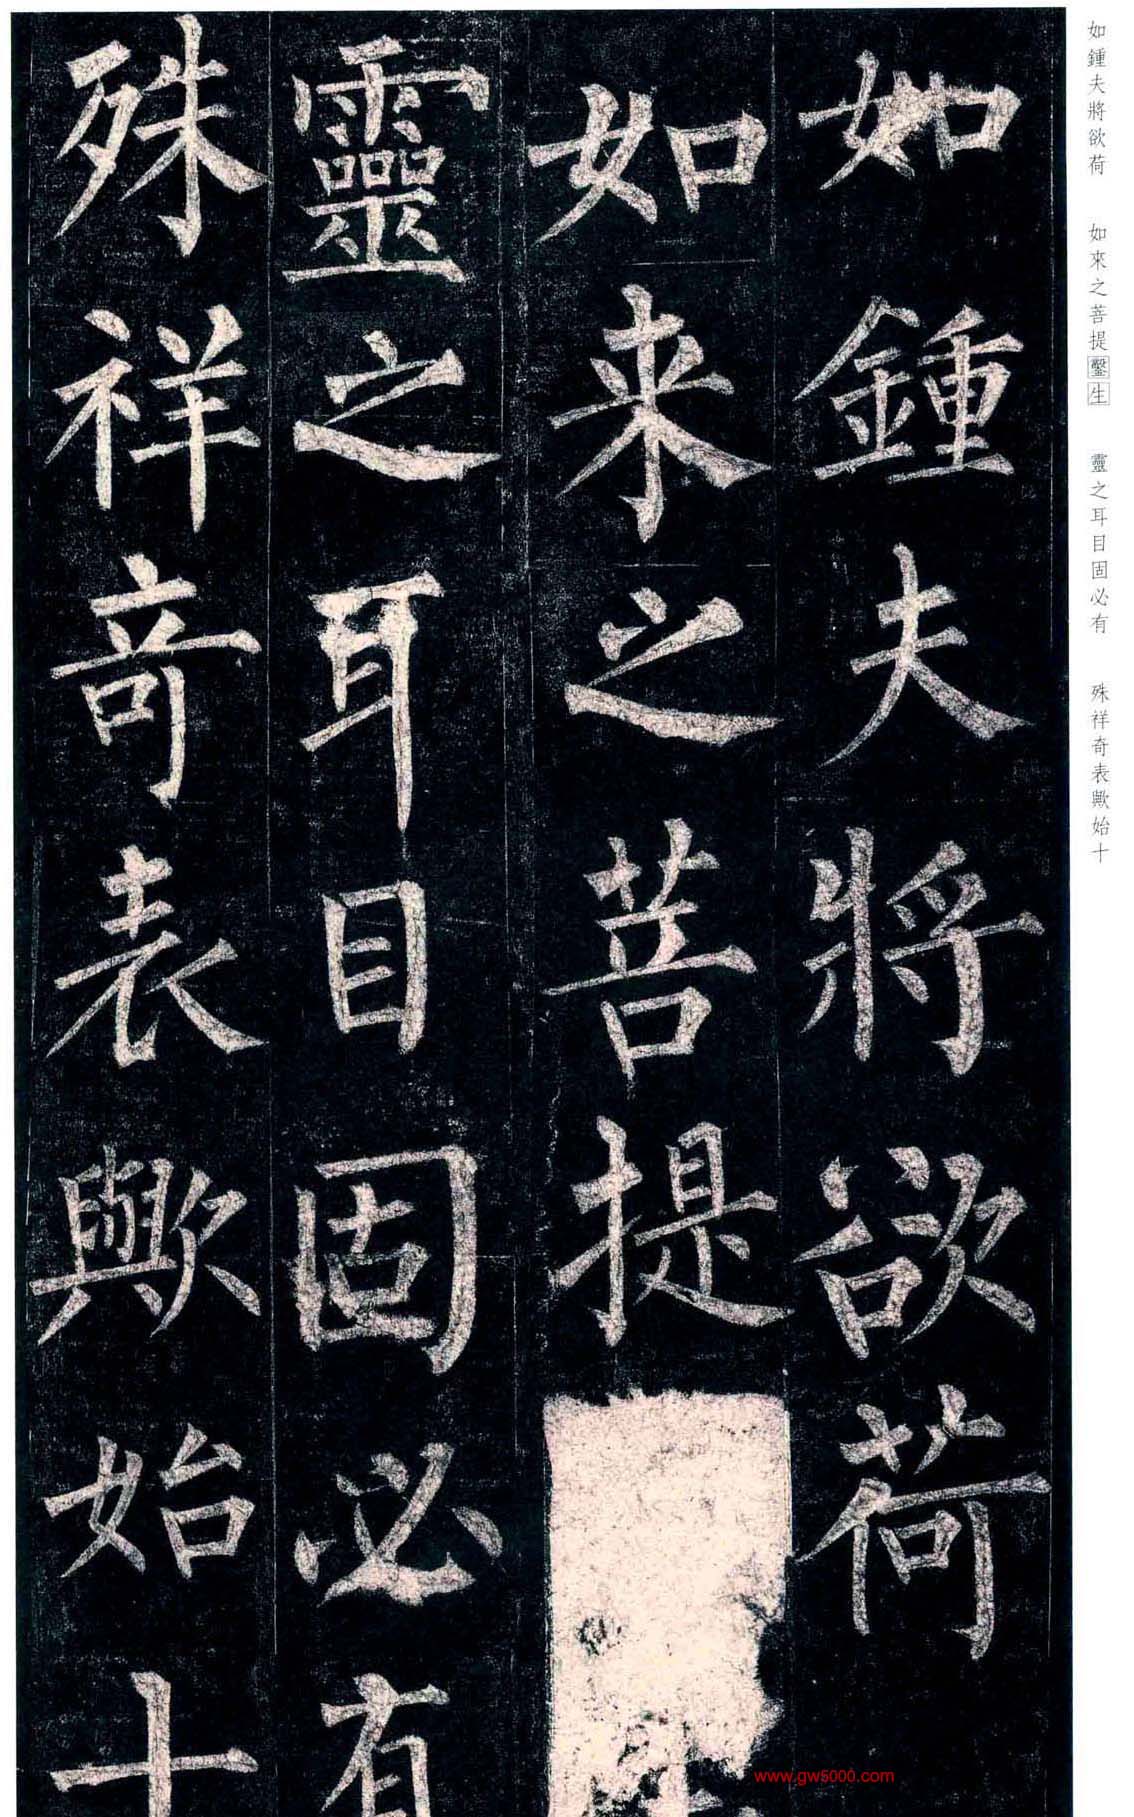 如鍾夫將欲荷
如来之菩提
靈之耳目固必有
殊祥竒表歟始十
如鍾夫將欲荷 如來之菩提鑿生 靈之耳目固必有 殊祥奇表歟始十
www.gw5000.com